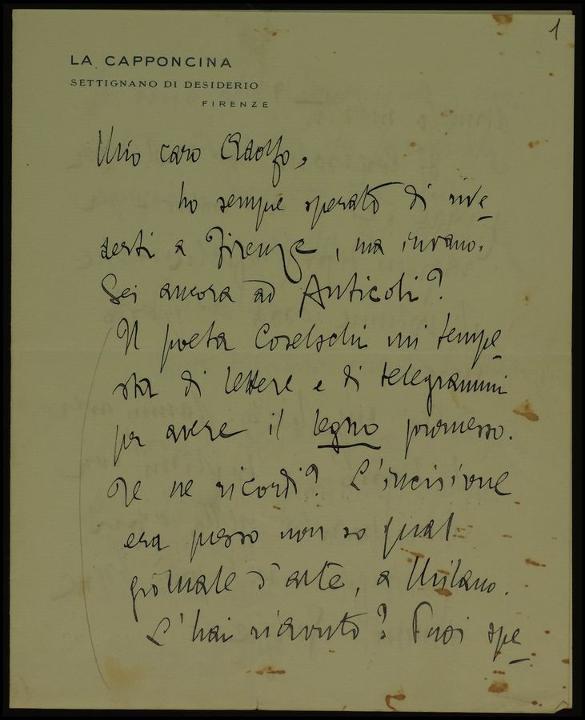 1
LA CAPPONCINA
SETTIGNANO DI DESIDERIO
FIRENZE
Mio caro Adolfo,
ho sempre sperato di rive
derti a Firenze, ma invano.
Sei ancora ad Anticoli?
Il poeta Coselschi mi tempe
sta di lettere e di telegrammi
per avere il legno promesso.
Te ne ricordi? L'incisione
era presso non so qual
giornale d'arte, a Milano.
L'hai riavuto? Puoi spe